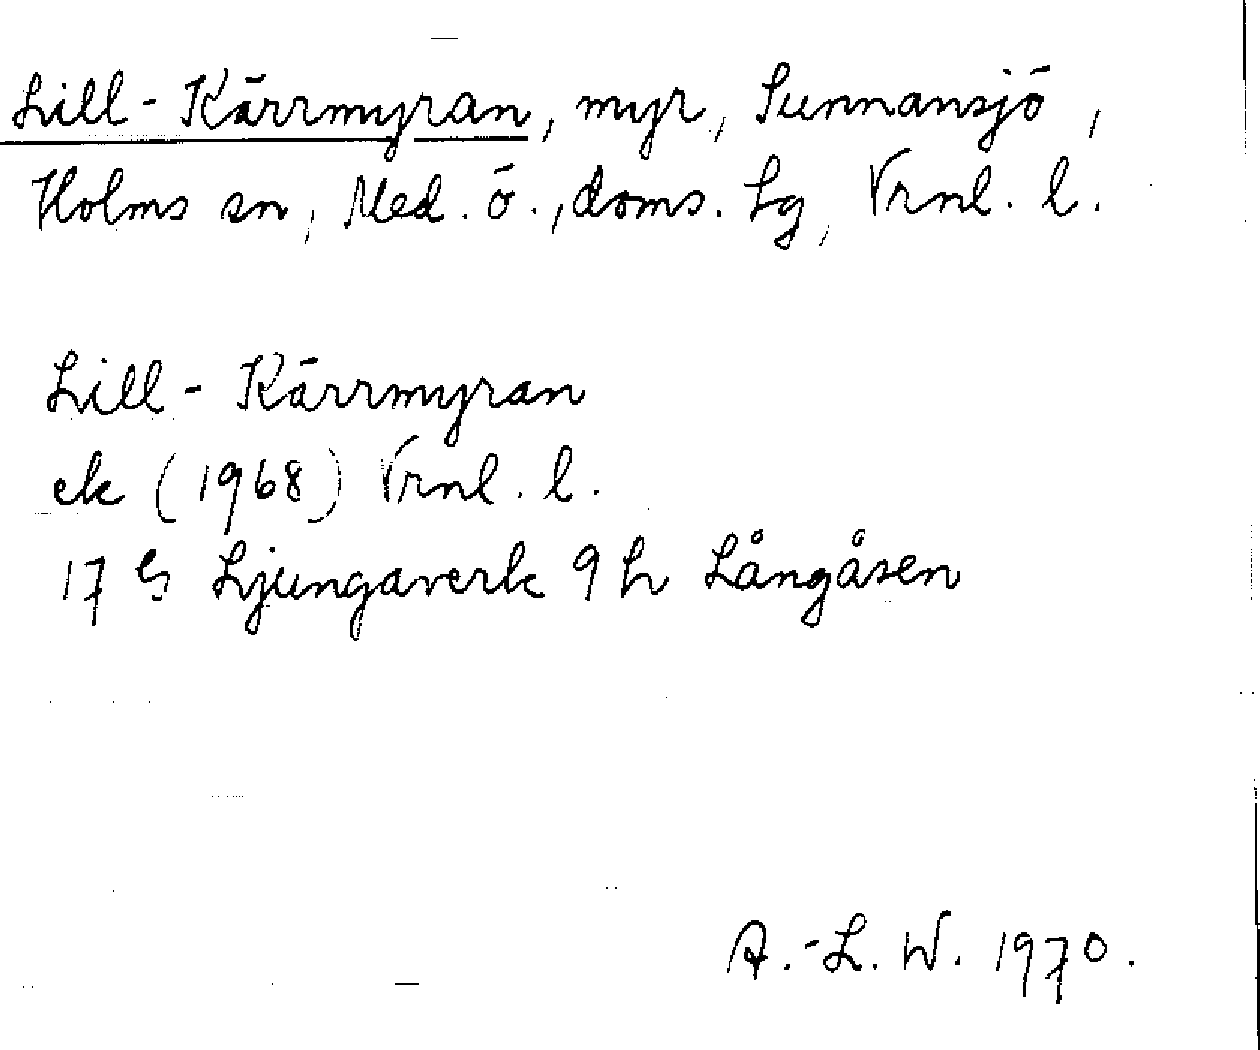 Lill-Kärrmyran, myr, Sunnansjö,
Holms sn, Med. ö., doms. Lg, Vrnl. l.
Lill-Kärrmyran
ek (1968) Vrnl. l.
17 G Ljungaverk 9 h Långåsen
A.-L. W. 1970.